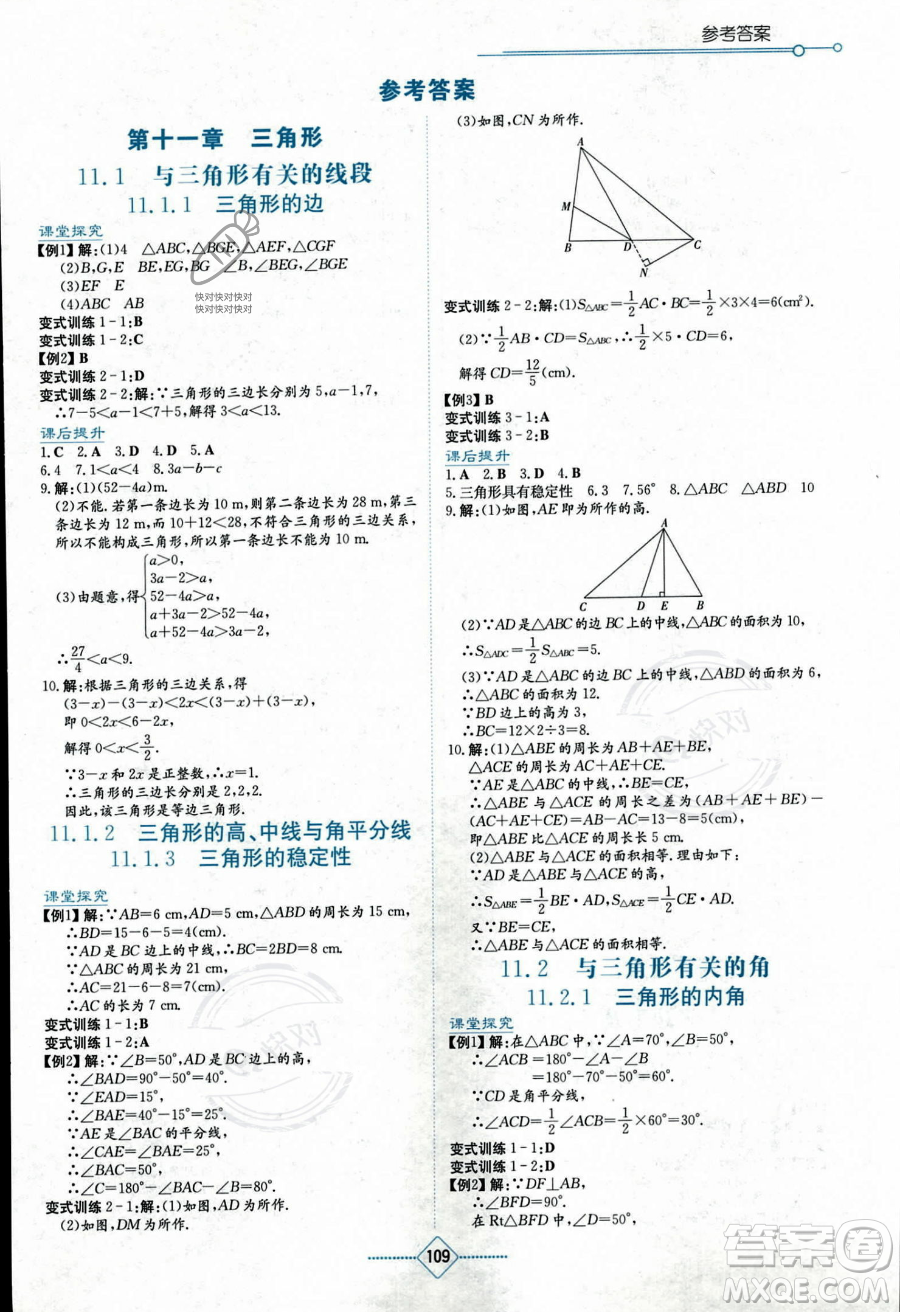 参考答案
参考答案
第十一章 三角形
11.1 与三角形有关的线段
11.1.1 三角形的边
课堂探究
【例1】解:(1)4 △ABC,△BGE,△AEF,△CGF
(2)B,G,E BE,EG,BG ∠B,∠BGE,∠BEG
(3)EF E
(4)ABC AB
变式训练1-1:B
变式训练1-2:C
【例2】B
变式训练2-1:D
变式训练2-2:解:∵三角形的三边长分别为5,a-1,7,
∴7-5<a-1<7+5,解得3<a<13.
课后提升
1.C 2.A 3.D 4.D 5.A
6.4 7.1<a<4 8.3a-b-c
9.解:(1)(52-4a)m.
(2)不能.若第一条边长为10 m,则第二条边长为28 m,第三
条边长为12 m,而10+12<28,不符合三角形的三边关系,
所以不能构成三角形,所以第一条边长不能为10 m.
(3)由题意,得{a>0,
3a-2>a,
52-4a>a,
a+3a-2>52-4a,
a+52-4a>3a-2,
∴27/4<a<9.
10.解:根据三角形的三边关系,得
(3-x)-(3-x)<2x<(3-x)+(3-x),
即0<2x<6-2x,
解得0<x<3/2.
∵3-x和2x是正整数,∴x=1.
∴三角形的三边长分别是2,2,2.
因此,该三角形是等边三角形.
11.1.2 三角形的高、中线与角平分线
11.1.3 三角形的稳定性
课堂探究
【例1】解:∵AB=6 cm,AD=5 cm,△ABD的周长为15 cm,
∴BD=15-6-5=4(cm).
∵AD是BC边上的中线,∴BC=2BD=8 cm.
∵△ABC的周长为21 cm,
∴AC=21-6-8=7(cm).
∴AC的长为7 cm.
变式训练1-1:B
变式训练1-2:A
【例2】解:∵∠B=50°,AD是BC边上的高,
∴∠BAD=90°-50°=40°.
∵∠EAD=15°,
∴∠BAE=40°-15°=25°.
∵AE是∠BAC的平分线,
∴∠CAE=∠BAE=25°.
∴∠BAC=50°.
∴∠C=180°-∠B-∠BAC=80°.
变式训练2-1:解:(1)如图,AD为所作.
(2)如图,DM为所作.
(3)如图,CN为所作.
A
M
B D C
N
变式训练2-2:解:(1)S△ABC=1/2AC·BC=1/2×3×4=6(cm²).
(2)∵1/2AB·CD=S△ABC,∴1/2×5·CD=6,
解得CD=12/5(cm).
【例3】B
变式训练3-1:A
变式训练3-2:B
课后提升
1.A 2.B 3.D 4.B
5.三角形具有稳定性 6.3 7.56° 8.△ABC △ABD 10
9.解:(1)如图,AE即为所作的高.
A
C D E B
(2)∵AD是△ABC的边BC上的中线,△ABC的面积为10,
∴S△ADC=1/2S△ABC=5.
(3)∵AD是△ABC的边BC上的中线,△ABD的面积为6,
∴△ABC的面积为12.
∵BD边上的高为3,
∴BC=12×2÷3=8.
10.解:(1)△ABE的周长为AB+AE+BE,
△ACE的周长为AC+AE+CE.
∵AE是△ABC的中线,∴BE=CE,
∴△ABE与△ACE的周长之差为(AB+AE+BE)-
(AC+AE+CE)=AB-AC=13-8=5(cm),
即△ABE与△ACE的周长差为5 cm.
(2)△ABE与△ACE的面积相等.理由如下:
∴S△ABE=1/2BE·AD,S△ACE=1/2CE·AD.
又∵BE=CE,
∴△ABE与△ACE的面积相等.
11.2 与三角形有关的角
11.2.1 三角形的内角
课堂探究
【例1】解:在△ABC中,∵∠A=70°,∠B=50°,
∴∠ACB=180°-∠A-∠B
=180°-70°-50°=60°.
∵CD是角平分线,
∴∠ACD=1/2∠ACB=1/2×60°=30°.
变式训练1-1:D
变式训练1-2:D
【例2】解:∵DF⊥AB,
∴∠BFD=90°.
在Rt△BFD中,∵∠D=50°,
109
快对快对快对
快对快对快对
快对
快对
答案圈
MXQE.COM